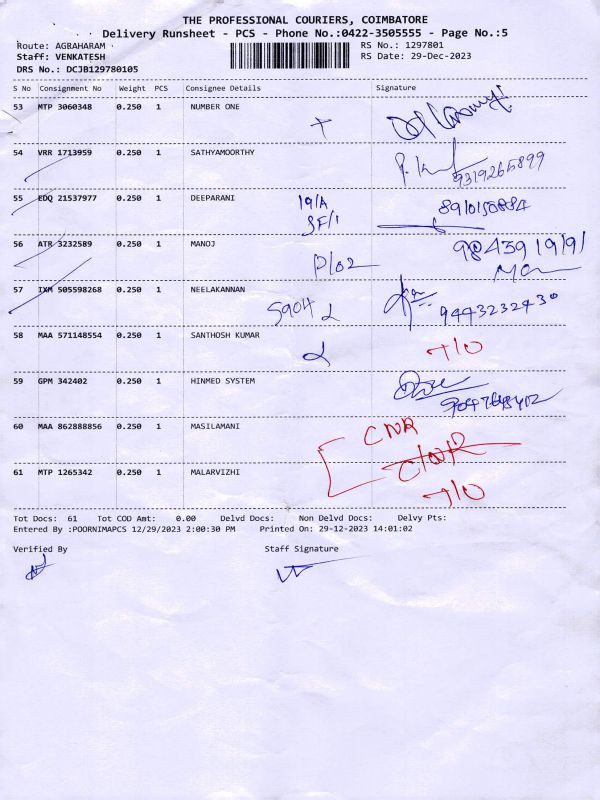 THE PROFESSIONAL COURIERS, COIMBATORE
Delivery Runsheet - PCS - Phone No.:0422-3505555 - Page No.:5
Route: AGRAHARAM RS No.: 1297801
Staff: VENKATESH RS Date: 29-Dec-2023
DRS No.: DCJB129780105
S No Consignment No Weight PCS Consignee Details Signature
53 MTP 3060348 0.250 1 NUMBER ONE
54 VRR 1713959 0.250 1 SATHYAMOORTHY
9319265899
55 EDQ 21537977 0.250 1 DEEPARANI 19/A
SF/1
56 ATR 3232589 0.250 1 MANOJ
9843919191
57 IXM 505598268 0.250 1 NEELAKANNAN
S904 9443232430
58 MAA 571148554 0.250 1 SANTHOSH KUMAR
59 GPM 342402 0.250 1 HINMED SYSTEM
60 MAA 862888856 0.250 1 MASILAMANI
CNR
61 MTP 1265342 0.250 1 MALARVIZHI
Tot Docs: 61 Tot COD Amt: 0.00 Delvd Docs: Non Delvd Docs: Delvy Pts:
Entered By :POORNIMAPCS 12/29/2023 2:00:30 PM Printed On: 29-12-2023 14:01:02
Verified By Staff Signature